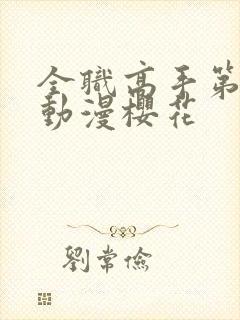 全職高手第
動漫櫻花
劉常儉